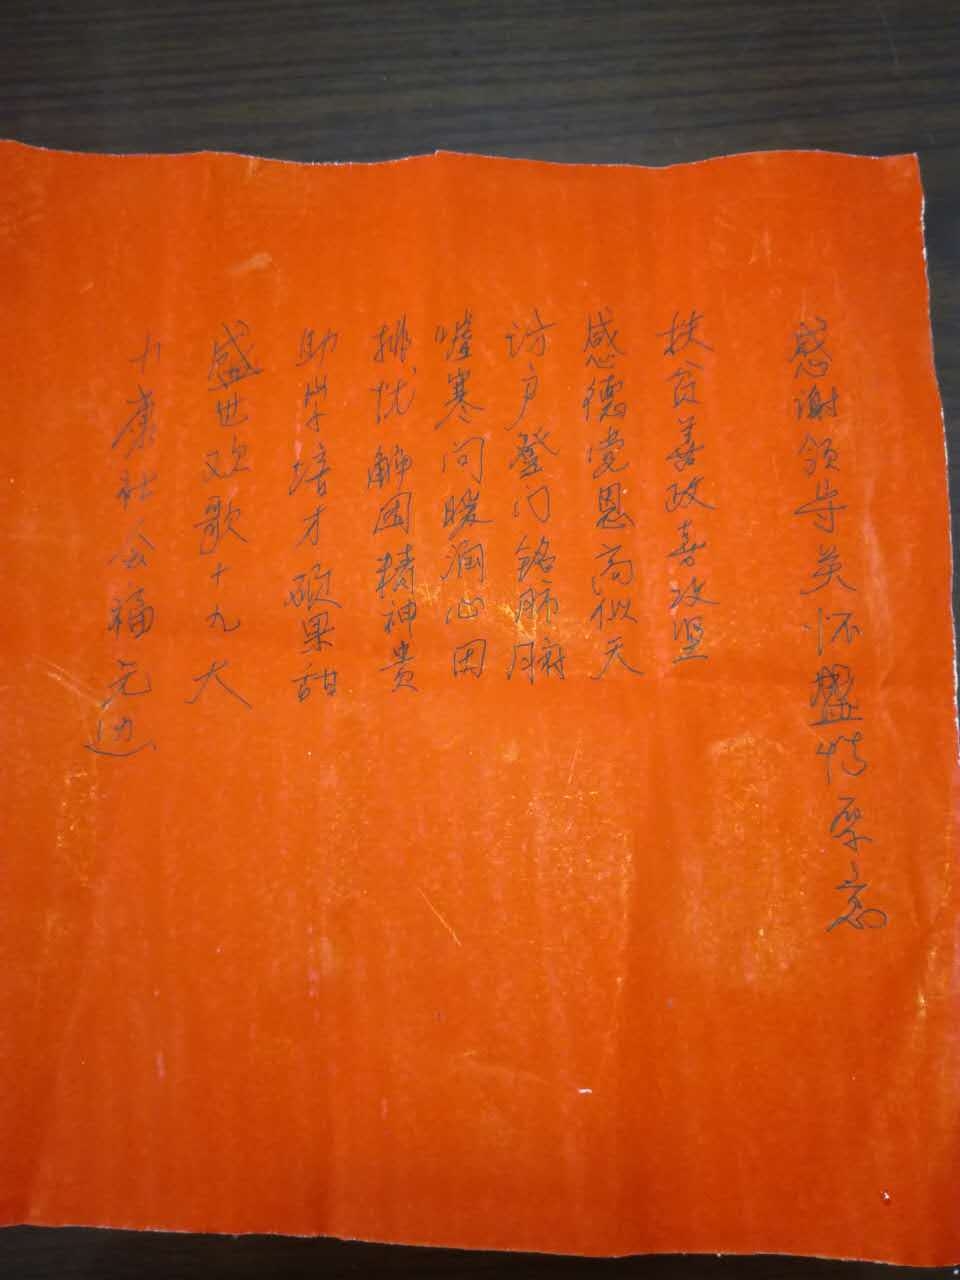 感谢领导关怀盛情厚意
扶贫善政喜攻坚
感德党恩高似天
访户登门铭肺腑
嘘寒问暖润心田
排忧解困精神贵
助学培才硕果甜
盛世欢歌十九大
小康社会福无边